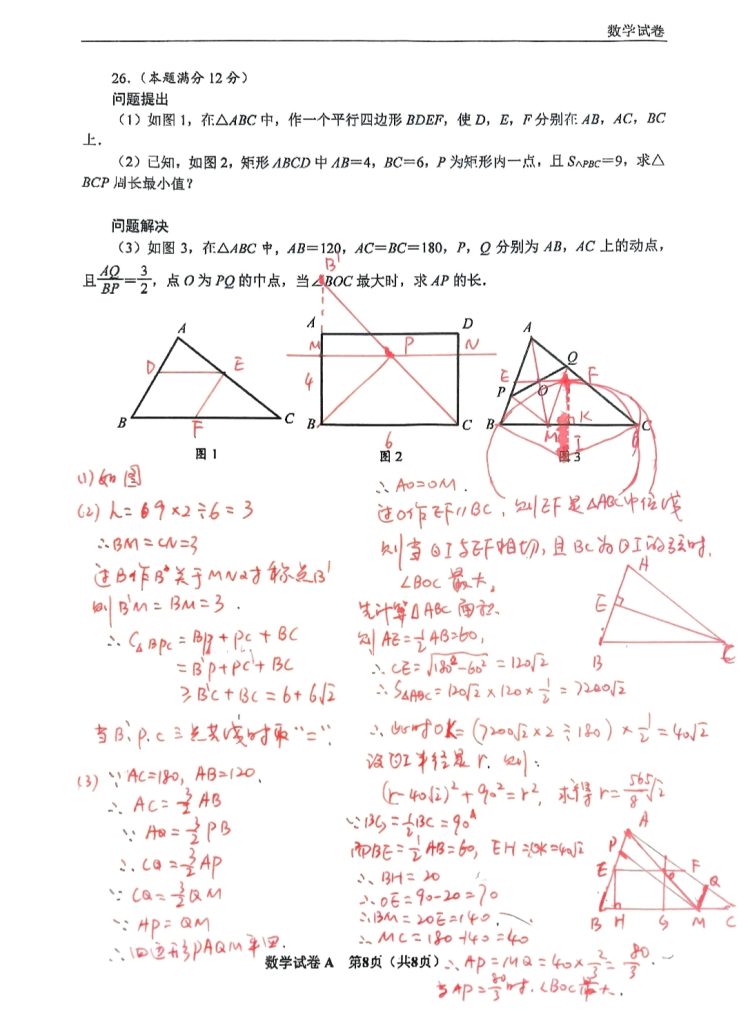 数学试卷
26.（本题满分 12 分）
问题提出
（1）如图 1，在△ABC 中，作一个平行四边形 BDEF，使 D，E，F 分别在 AB，AC，BC
上．
（2）已知，如图 2，矩形 ABCD 中 AB＝4，BC＝6，P 为矩形内一点，且 S△PBC＝9，求△
BCP 周长最小值？
问题解决
（3）如图 3，在△ABC 中，AB＝120，AC＝BC＝180，P，Q 分别为 AB，AC 上的动点，
且AQ/BP＝3/2，点 O 为 PQ 的中点，当∠BOC 最大时，求 AP 的长．
B'
A
D
E
B
F
C
图 1
A
D
M
P
N
4
B
C
6
图 2
A
Q
E
F
P
O
K
B
M
I
C
图 3
(1) 如图
(2) h = 9×2÷6 = 3
∴BM=CN=3
过B作B关于MN对称点B'
则B'M=BM=3.
∴ C△BPC = BP + PC + BC
= B'P+PC+BC
≥B'C+BC=6+6√2
当B'、P、C三点共线时取"=".
(3) ∵AC=180, AB=120.
∴ AC=3/2AB
∵ AQ=3/2PB
∴ CQ=3/2AP
∵ CQ=3/2QM
∵ AP=QM
∴四边形PAQM平四.
∴ AO=OM.
过O作EF∥BC，则EF是△ABC中位线
则当⊙I与EF相切，且BC为⊙I的弦时，
∠BOC 最大。
先计算△ABC面积.
则AE=1/2AB=60,
∴ CE=√180²-60² =120√2
∴ S△ABC=120√2×120×1/2=7200√2
∴此时OK=(7200√2×2÷180)×1/2=40√2
设⊙I半径是r. 则:
(r-40√2)²+90²=r², 求得r=565/8√2
∵BG=1/2BC=90
而BE=1/2AB=60, EH=OK=40√2
∴ BH=20
∴OE=90-20=70
∴BM=2OE=140.
∴ MC=180-140=40
∴AP=MQ=40×2/3=80/3.
当AP=80/3时，∠BOC最大.
A
E
B
C
A
P
E
F
Q
B
H
G
M
C
数学试卷 A 第8页（共8页）